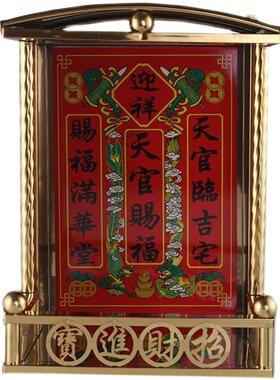 迎祥
天官臨吉宅
天官賜福
賜福滿華堂
招財進寶